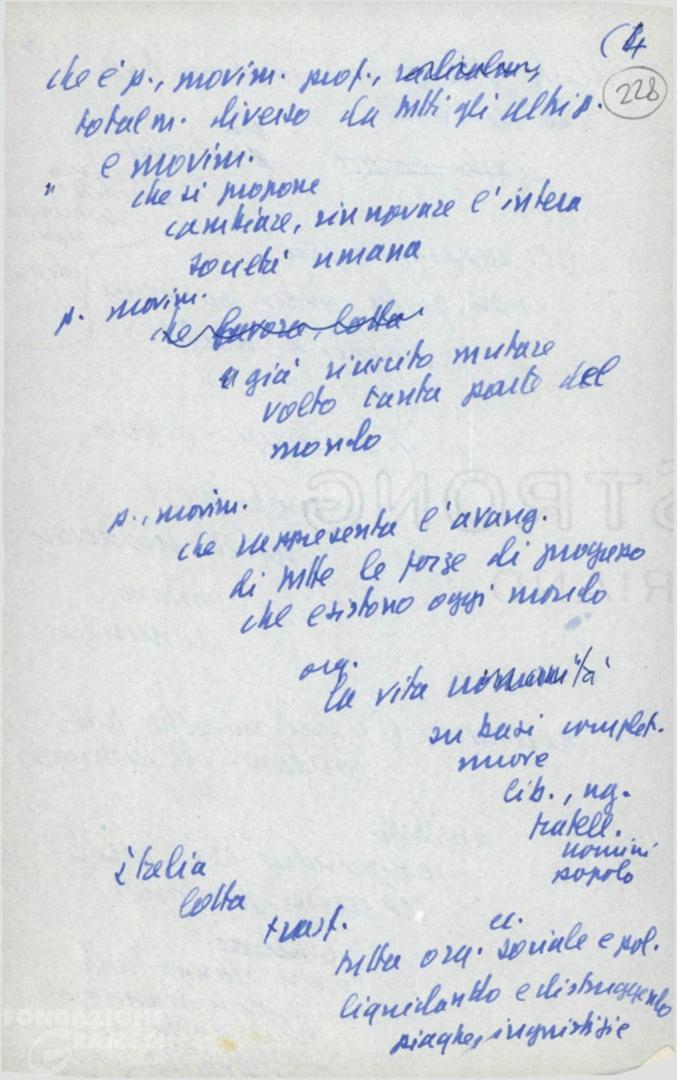 (4
228
che è p., movim. prof.,
totalm. diverso da tutti gli altri p.
e movim.
" che si propone
cambiare, rinnovare l'intera
società umana
p. movim.
che lavora, lotta
è già riuscito mutare
volto tanta parte del
mondo
p., movim.
che rappresenta l'avang.
di tutte le forze di progresso
che esistono oggi mondo
org.
la vita
su basi complet.
nuove
lib., ug.
fratell.
uomini
popolo
Italia
lotta
trasf.
ec.
tutta org. sociale e pol.
liquidando e distruggendo
piaghe, ingiustizie
STRONG
FONDAZIONE
GRAMSCI